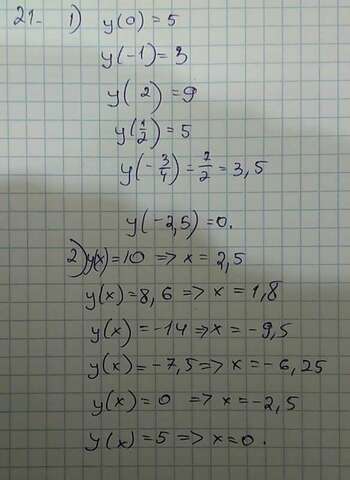 21. 1) y(0) = 5
y(-1) = 3
y( 2) = 9
y(1/2) = 5
y(-3/4) = 7/2 = 3,5
y(-2,5) = 0.
2) y(x) = 10 => x = 2,5
y(x) = 8,6 => x = 1,8
y(x) = -14 => x = -9,5
y(x) = -7,5 => x = -6,25
y(x) = 0 => x = -2,5
y(x) = 5 => x = 0.